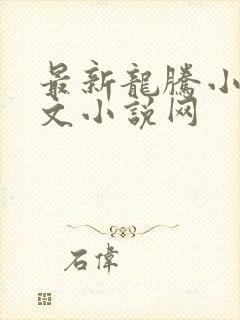 最新龍騰小
文小說网
石偉